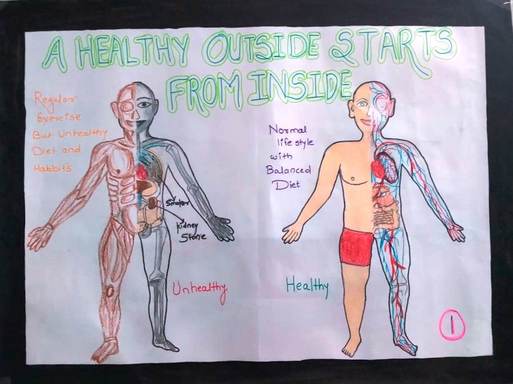 A HEALTHY OUTSIDE STARTS
FROM INSIDE
Regular
Exercise
But Unhealthy
Diet and
Habbits
Smoker
Kidney
Stone
Unhealthy
Normal
life style
with
Balanced
Diet
Healthy
1